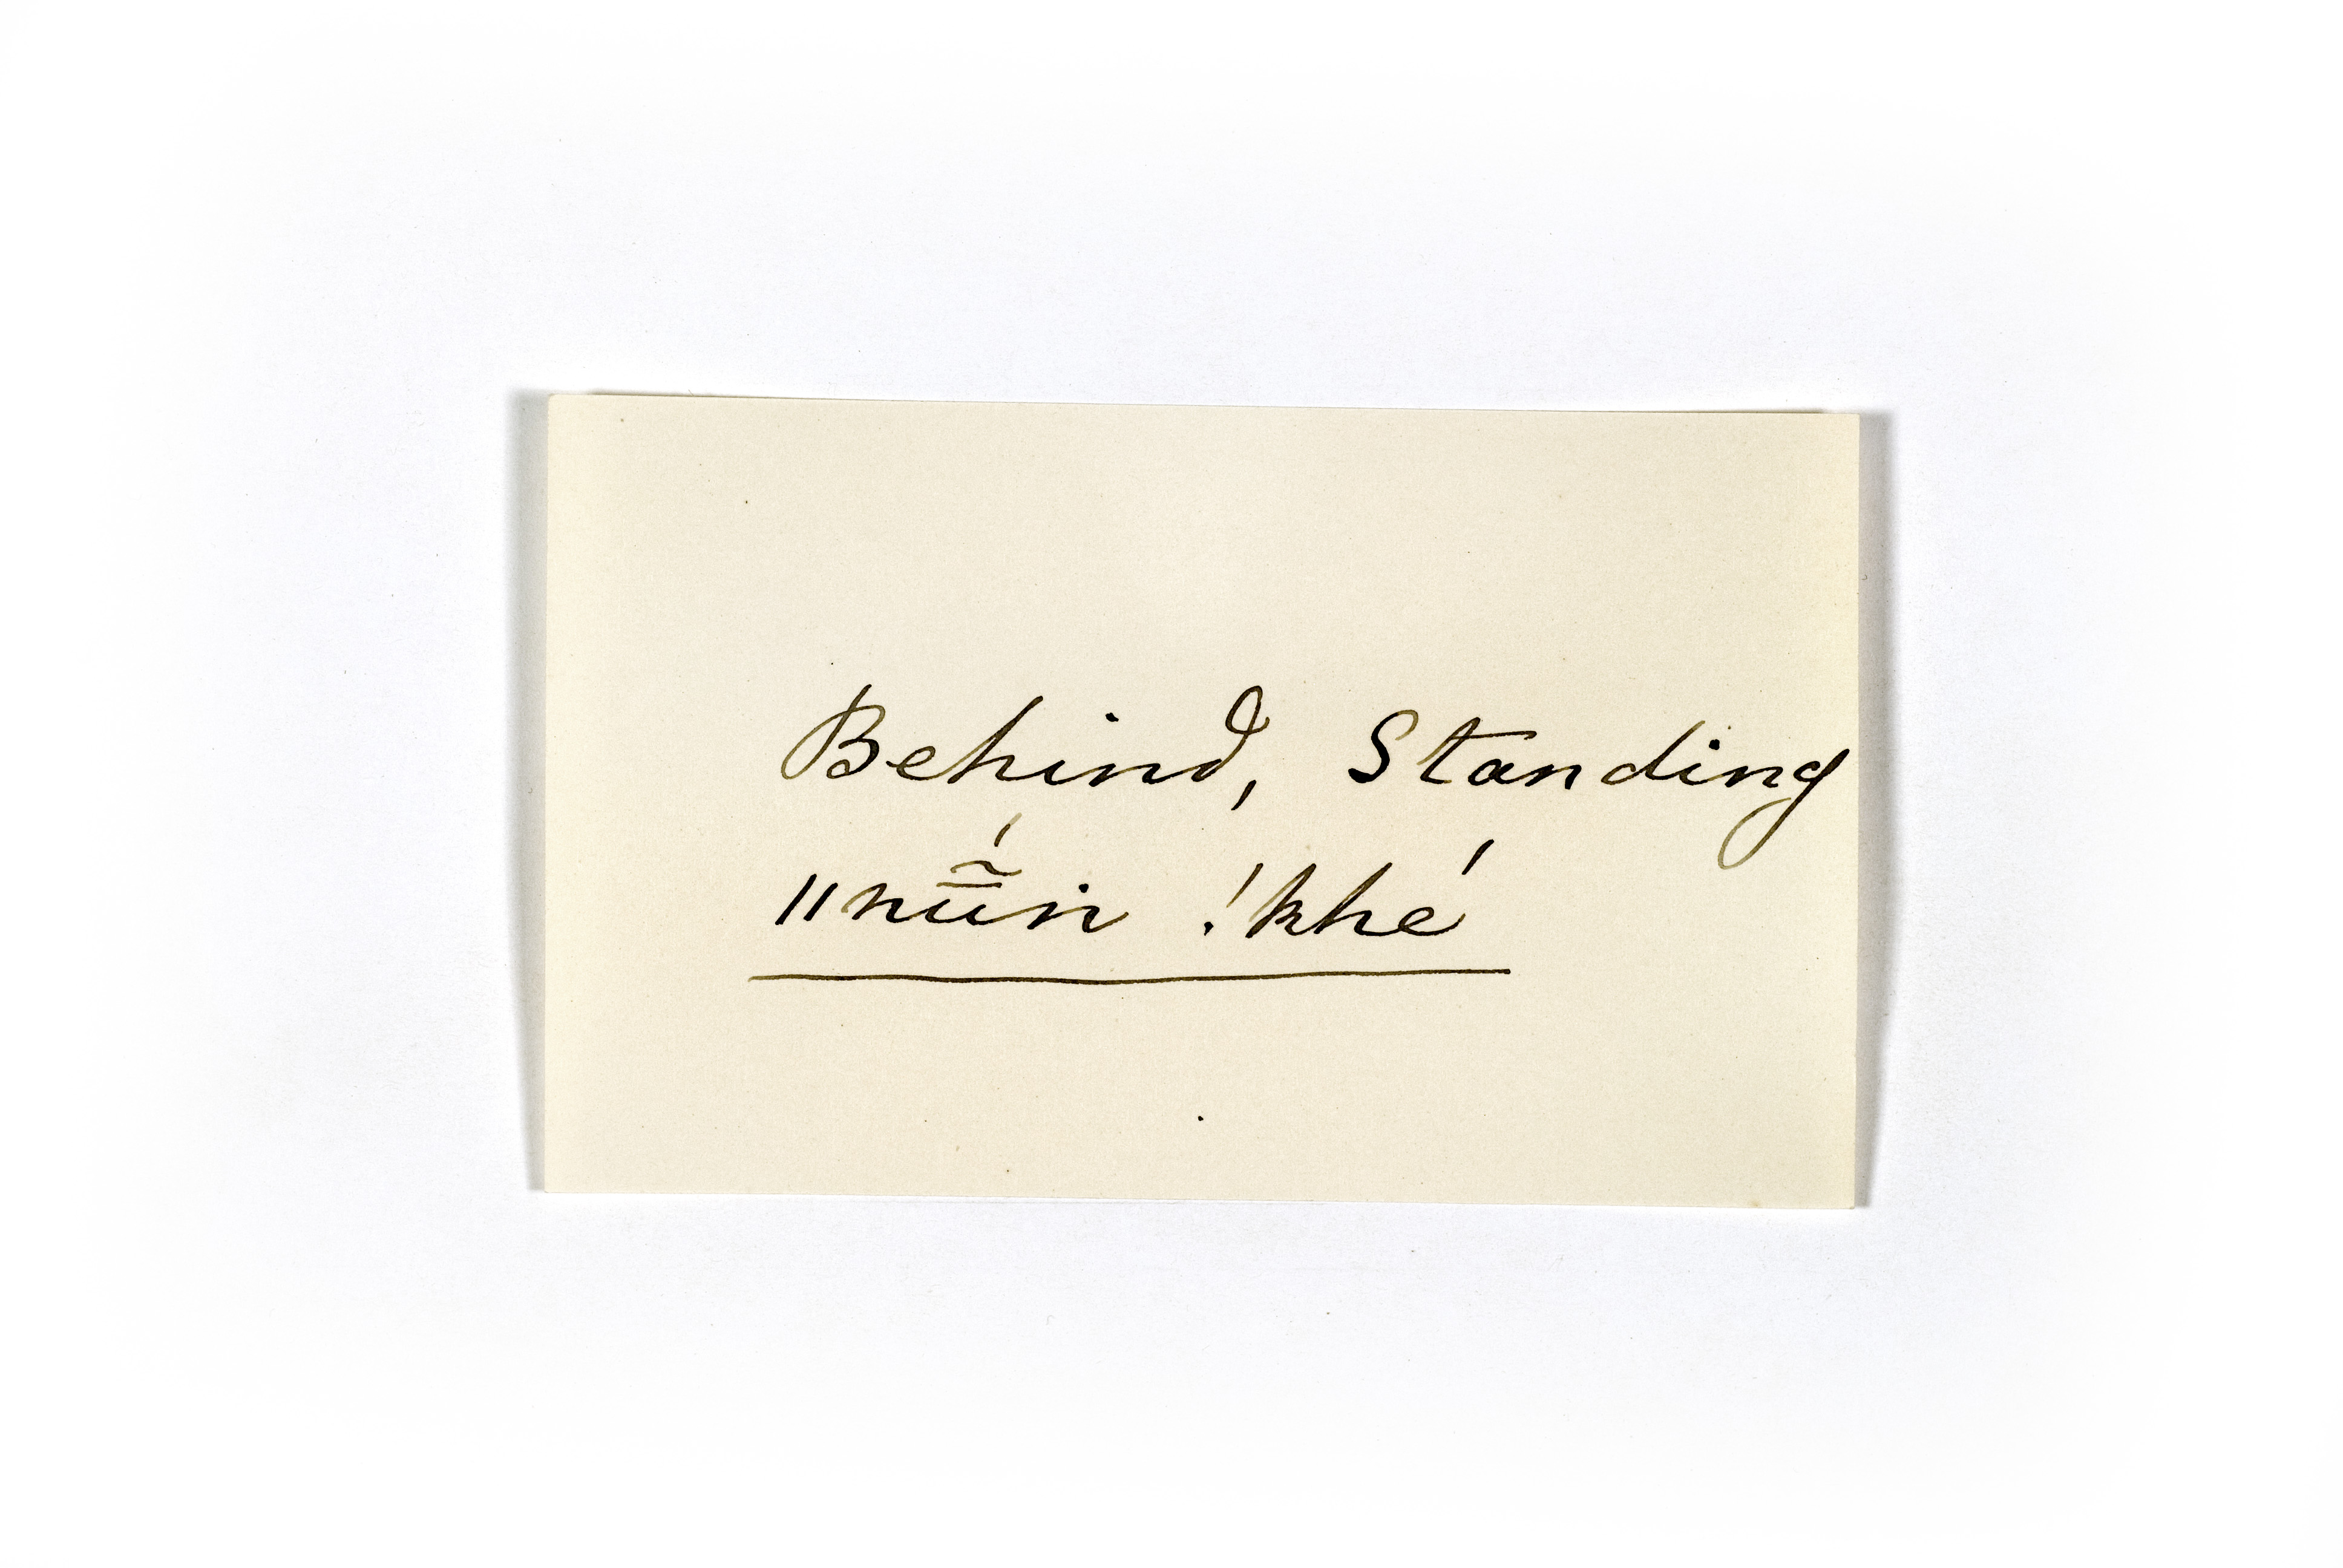 Behind, Standing
ǁnū̃́n !khé